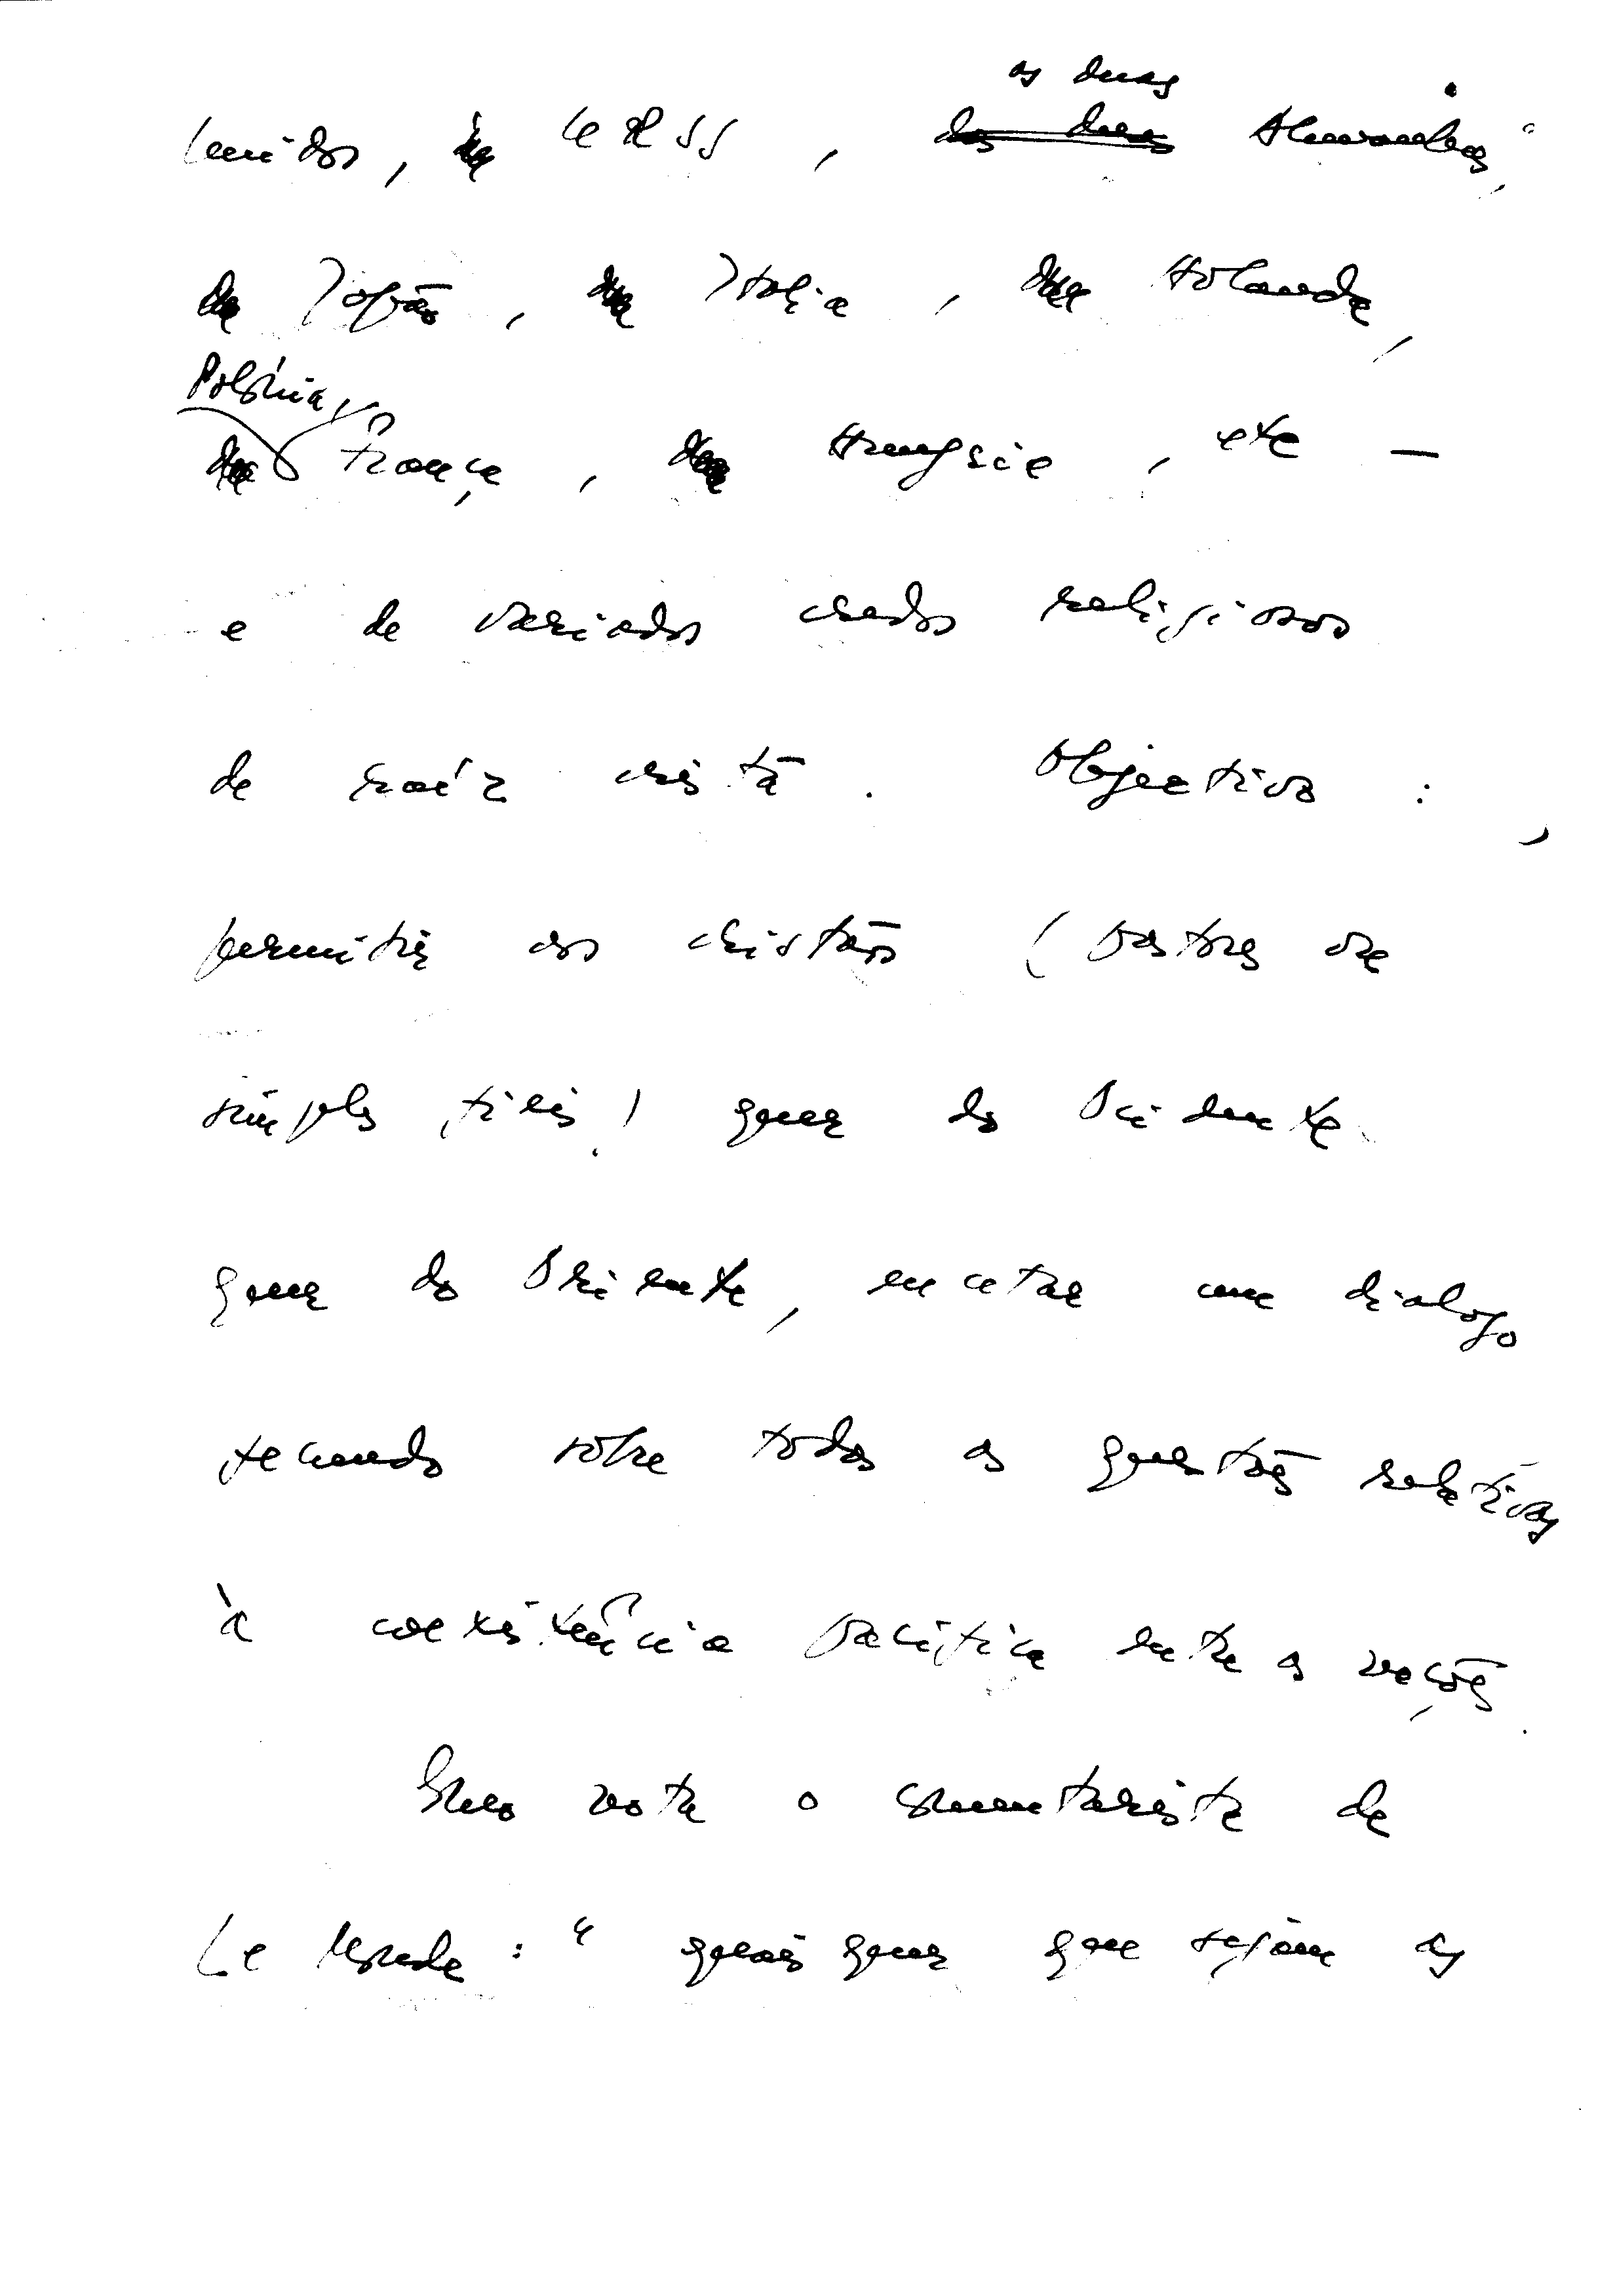 as duas
Unidos, URSS, das duas Alemanhas,
Japão, Itália, Holanda,
Polónia,
França, Hungria, etc —
e de variados credos religiosos
de raíz cristã. Objectivo:
permitir aos cristãos (pastores ou
simples fiéis) quer do Ocidente
quer do Oriente, encetar um dialogo
fecundo sobre todas as questões relativas
à coexistência pacífica entre as nações.
Como nota o comentarista de
Le Monde: "quaisquer que sejam as